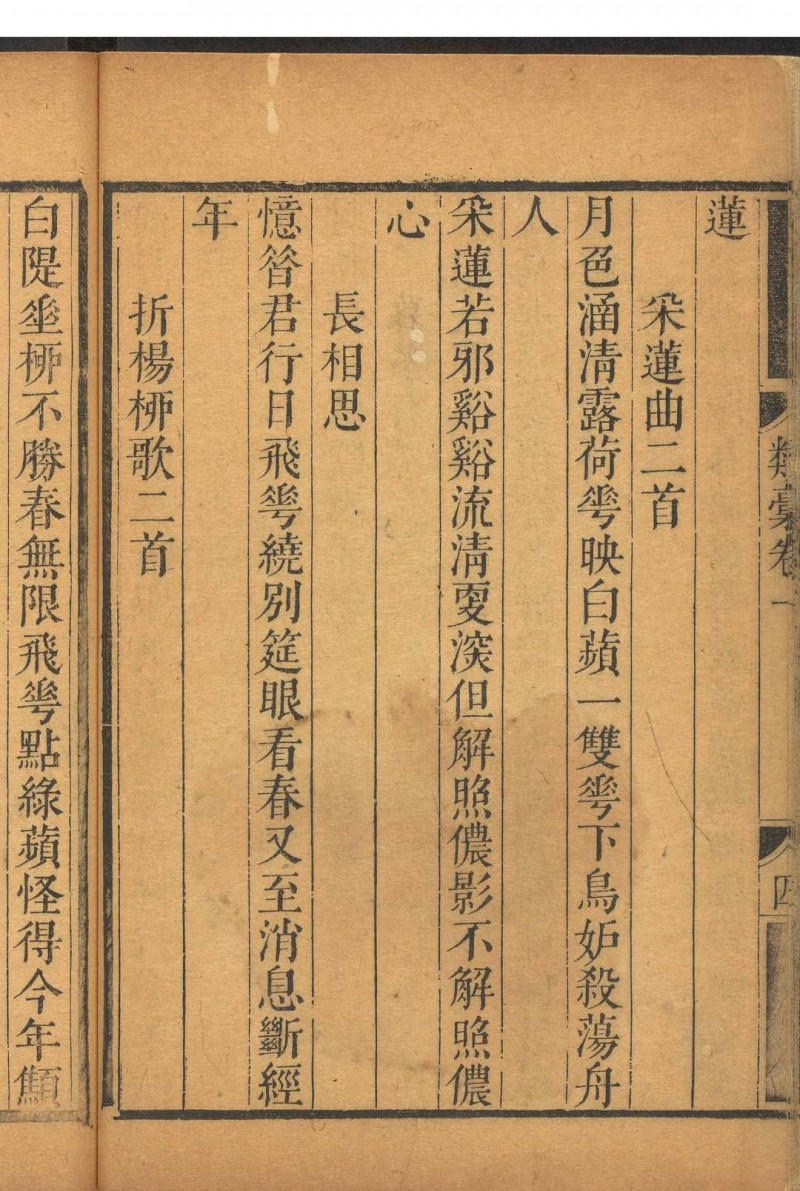 類稾卷一
四
蓮
采蓮曲二首
月色涵清露荷䔢映白蘋一雙䔢下鳥妒殺蕩舟
人
采蓮若邪谿谿流清㪅深但解照儂影不解照儂
心
長相思
憶昝君行日飛䔢繞別筵眼看春又至消息斷經
年
折楊桺歌二首
白隄𡍮桺不勝春無限飛䔢點綠蘋怪得今年顦